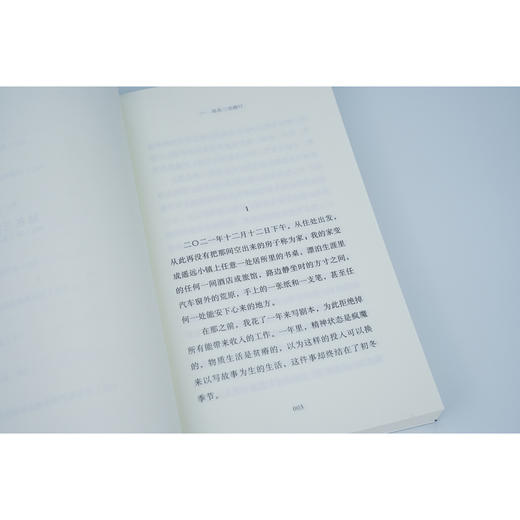 1
二〇二一年十二月十二日下午，从住处出发，
从此再没有把那间空出来的房子称为家，我的家变
成遥远小镇上任意一处居所里的书桌，漂泊生涯里
的任何一间酒店或旅馆，路边静坐时的方寸之间，
汽车窗外的荒原，手上的一张纸和一支笔，甚至任
何一处能安下心来的地方。
在那之前，我花了一年来写剧本，为此拒绝掉
所有能带来收入的工作。一年里，精神状态是疯魔
的，物质生活是贫瘠的，以为这样的投入可以换
来以写故事为生的生活，这件事却终结在了初冬
季节。
003